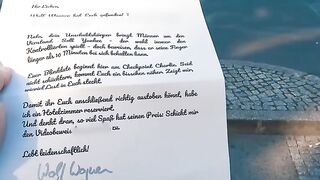 Ihr Lieben,
Null Women hat Euch
Nein, dein Unschuldslächeln bringt Männer um den
Verstand. Soll Yender - der wohl immer den
Kontrolletten spielt - doch beweisen, dass er seine Finger
länger als 10 Minuten bei sich behalten kann.
Euer Blinddate beginnt hier am Checkpoint Charlie. Seid
nicht schüchtern, kommt Euch ein bisschen näher. Zeigt mir,
wieviel Lust in Euch steckt.
Damit ihr Euch anschließend richtig austoben könnt, habe
ich ein Hotelzimmer reserviert.
Und denkt dran, so viel Spaß hat seinen Preis: Schickt mir
den Videobeweis
Lebt leidenschaftlich!
Wolf Wagner